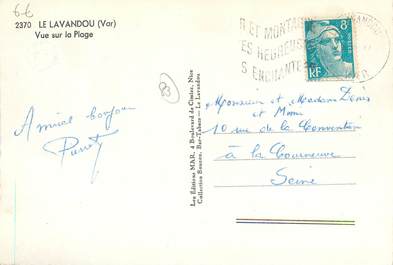 6-6
2370 LE LAVANDOU (Var)
Vue sur la Plage
Amical bonjour
Pierrot
83
Les Editions MAR, 4 Boulevard de Cimiez, Nice
Collection Bessone, Bar-Tabacs - Le Lavandou
ET MONTAGN
ES HEUREUSES
S ENCHANTE
LAVANDOU
8F
RF
Monsieur et Madame Denis
et Mami
10 rue de la Convention
à la Courneuve
Seine